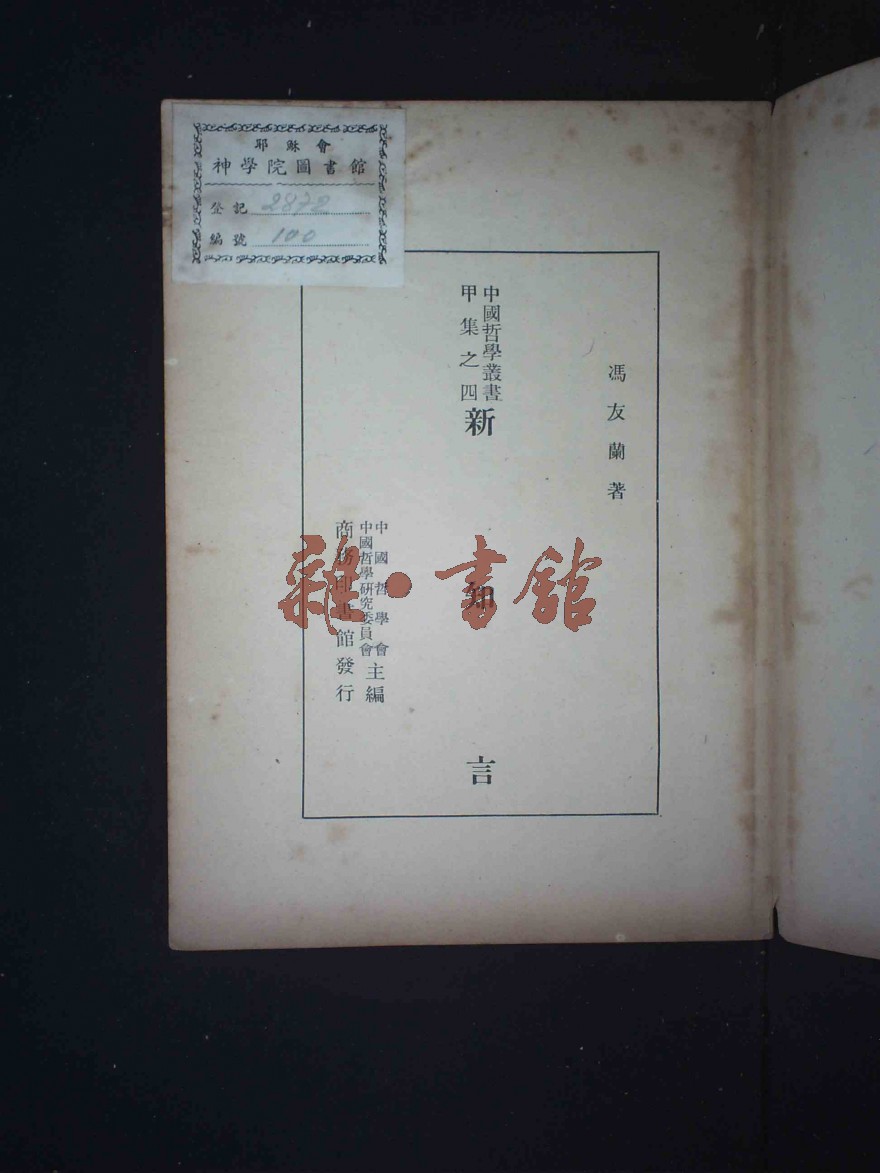 耶穌會
神學院圖書館
登記 2872
編號 100
馮友蘭著
中國哲學叢書
甲集之四
新知言
中國哲學會
中國哲學研究委員會
主編
商務印書館發行
雜·書館